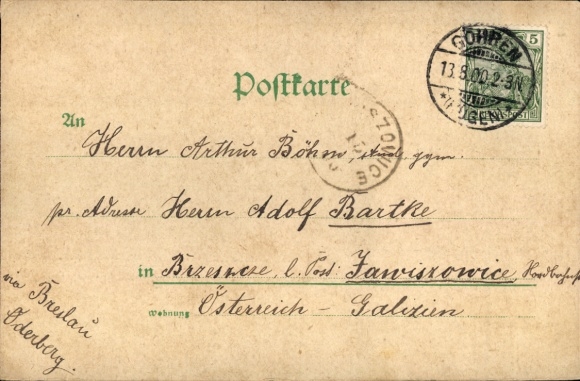 Postkarte
5
GÖHREN
13.8.00.2-3N
*(RÜGEN)*
REICHSPOST
An
Herrn Arthur Böhm, stud. gym.
pr. Adresse Herrn Adolf Bartke
in Brzeszcze, l. Post: Jawiszowice, Nordbahnst
Wohnung Österreich - Galizien
via Breslau
Oderberg.